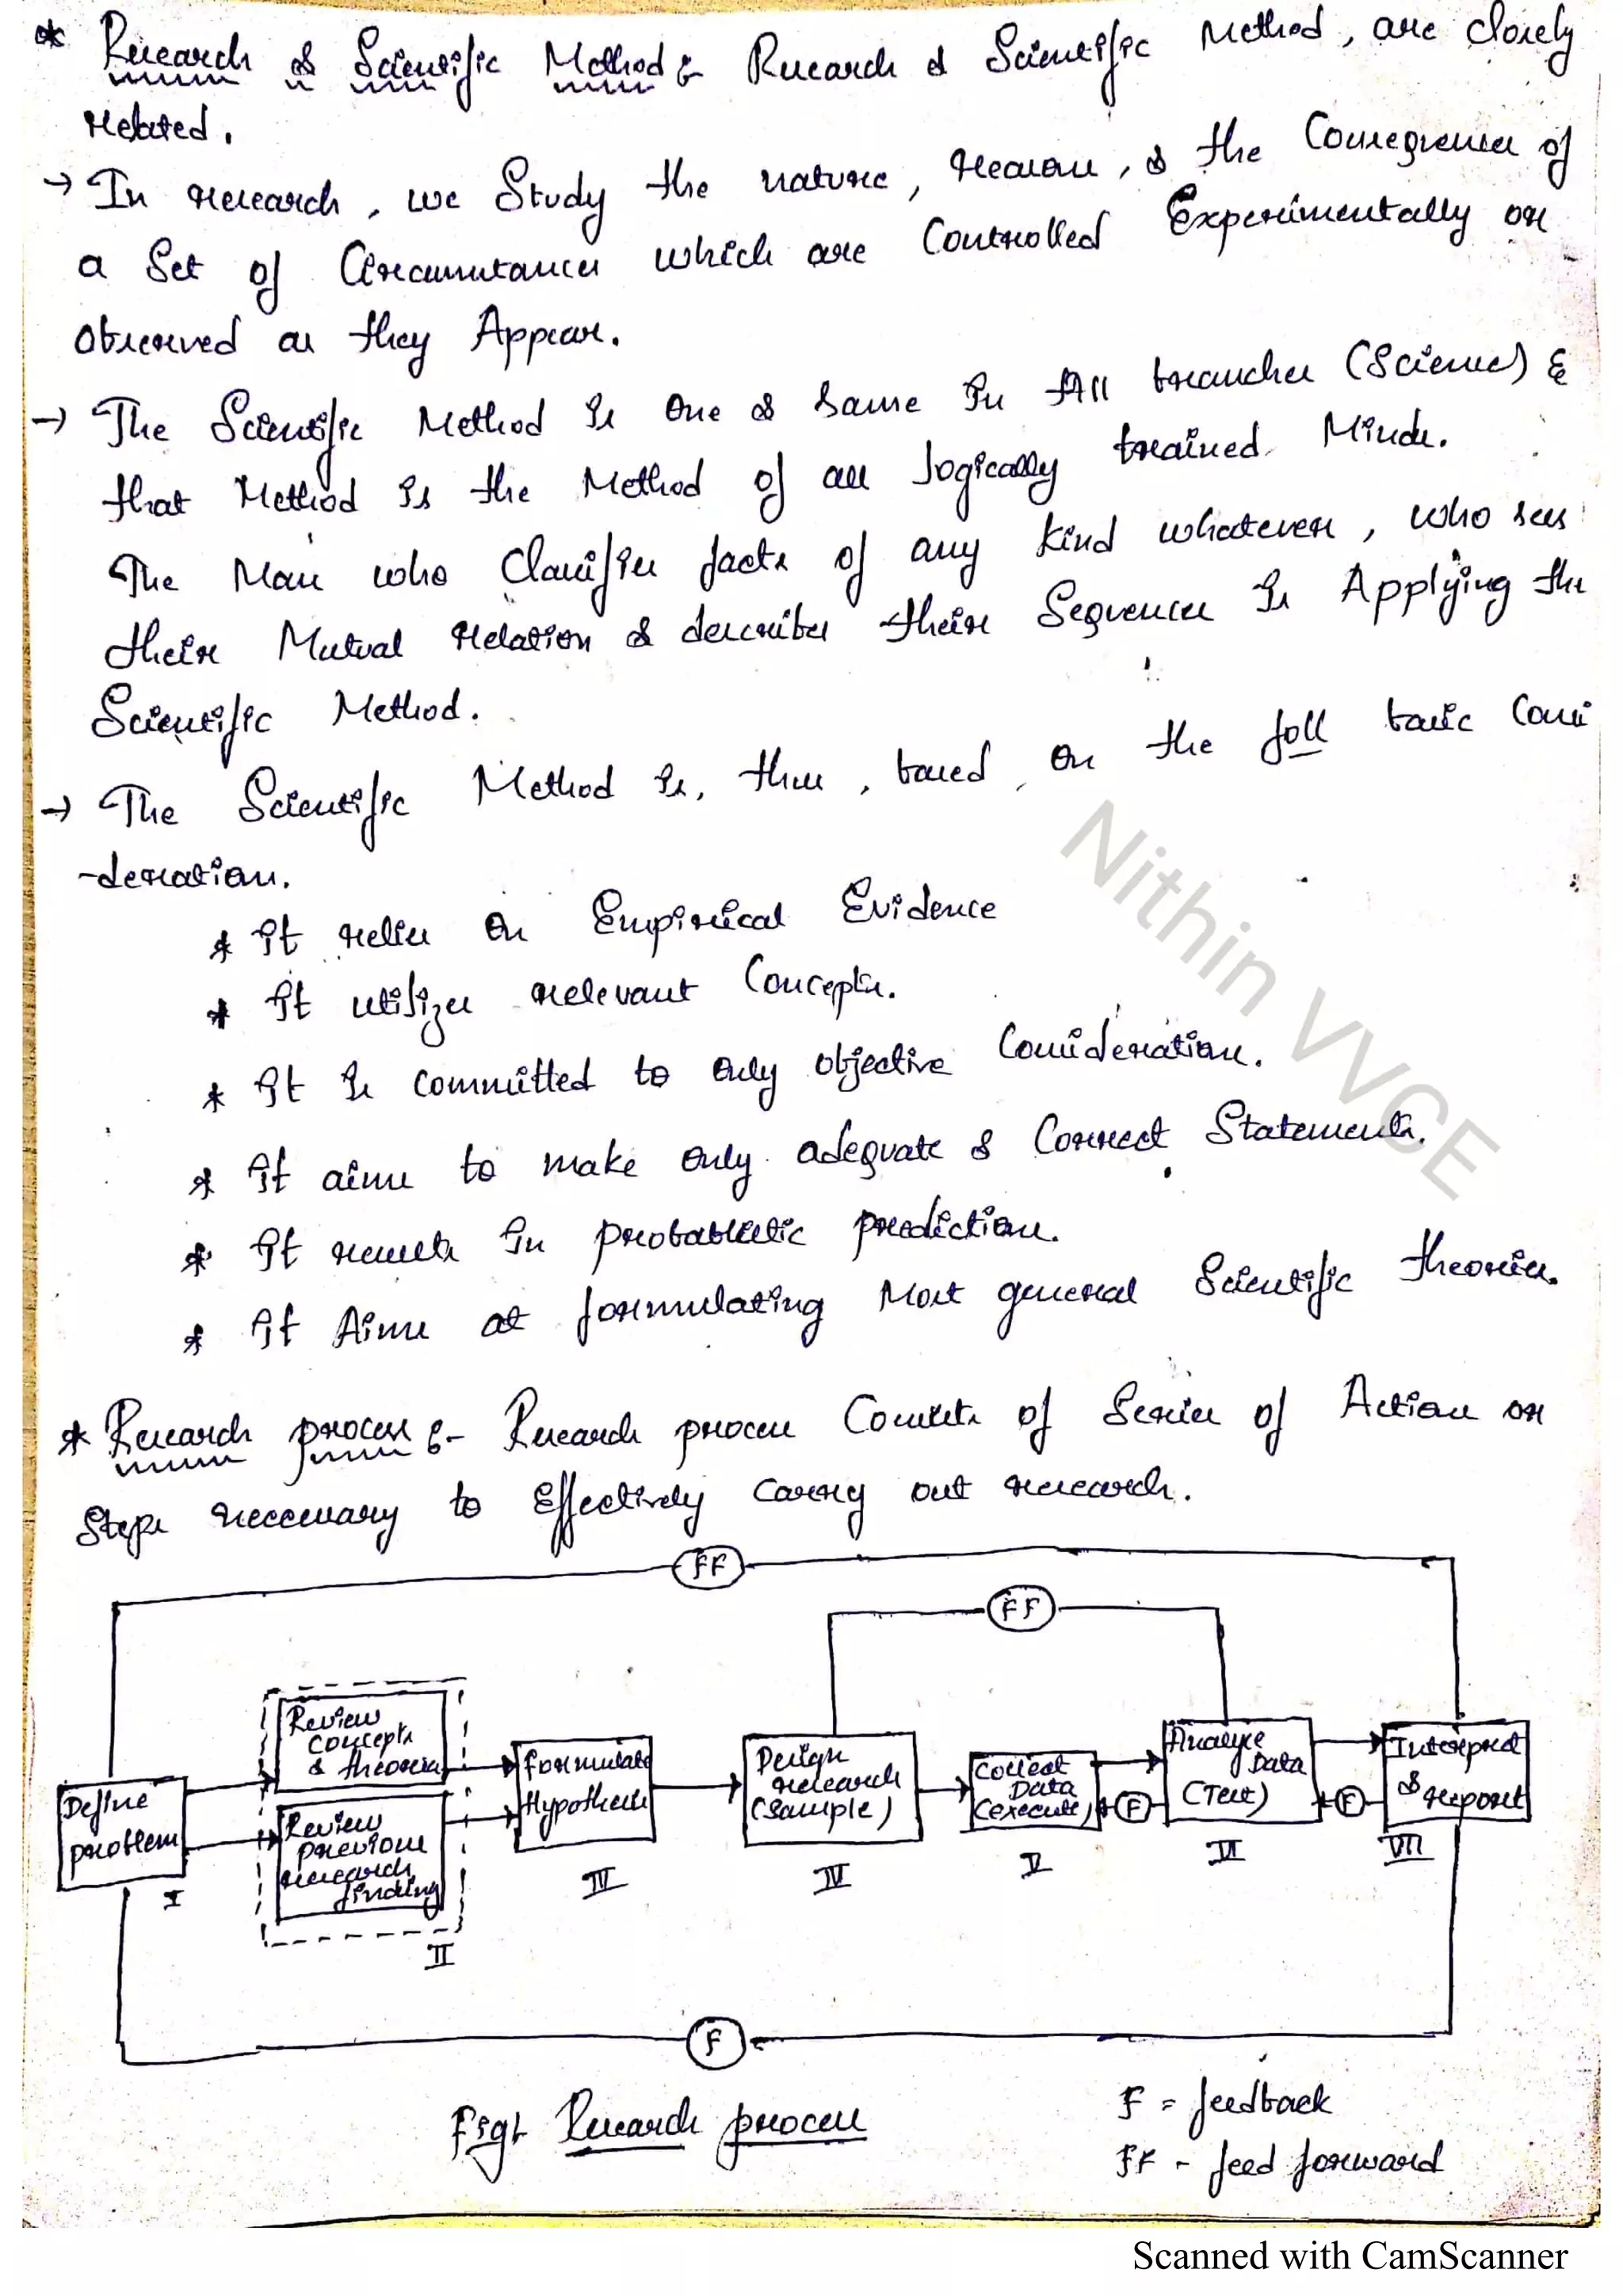 * Research & Scientific Method :- Research & Scientific Method, are closely
related.
→ In research, we Study the nature, reasons, & the Consequences of
a Set of Circumstances which are Controlled Experimentally or
observed as they Appear.
→ The Scientific Method is one & same in All branches (Science) &
that Method is the Method of all logically trained Minds.
The Man who Classifies facts of any kind whatever, who sees
their Mutual relation & describes their Sequences is Applying the
Scientific Method.
→ The Scientific Method is, thus, based on the foll basic Consi
-derations.
* it relies on Empirical Evidence
* it utilizes relevant Concepts.
* it is committed to only objective Considerations.
* it aims to make only adequate & Correct Statements.
* it results in probabilistic predictions.
* it Aims at formulating Most general Scientific theories.
* Research process :- Research process Consists of Series of Actions or
Steps necessary to Effectively carry out research.
FF
FF
Define
problem
I
Review
concepts
& theories
Review
previous
research
finding
II
formulate
Hypothesis
III
Design
research
(sample)
IV
Collect
Data
(execute)
V
F
Analyse
Data
(Test)
VI
F
Interpret
& report
VII
F
Fig:- Research process
F = feedback
FF - feed forward
Nithin VVCE
Scanned with CamScanner